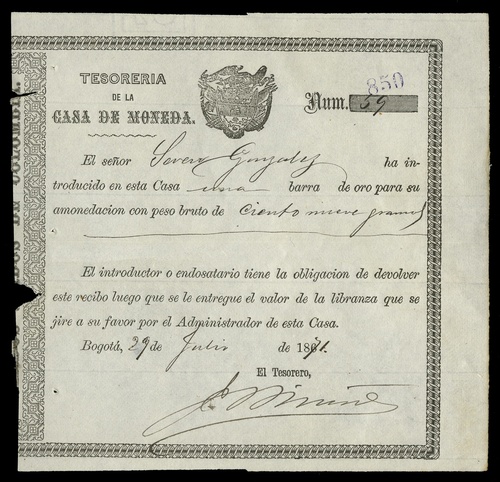 850
TESORERIA
DE LA
CASA DE MONEDA.
Num. 59
El señor Severo Gonzalez ha in-
troducido en esta Casa una barra de oro para su
amonedacion con peso bruto de Ciento nueve gramos
El introductor o endosatario tiene la obligacion de devolver
este recibo luego que se le entregue el valor de la libranza que se
jire a su favor por el Administrador de esta Casa.
Bogotá, 29 de Julio de 1871.
El Tesorero,
DOS DE COLOMBIA.